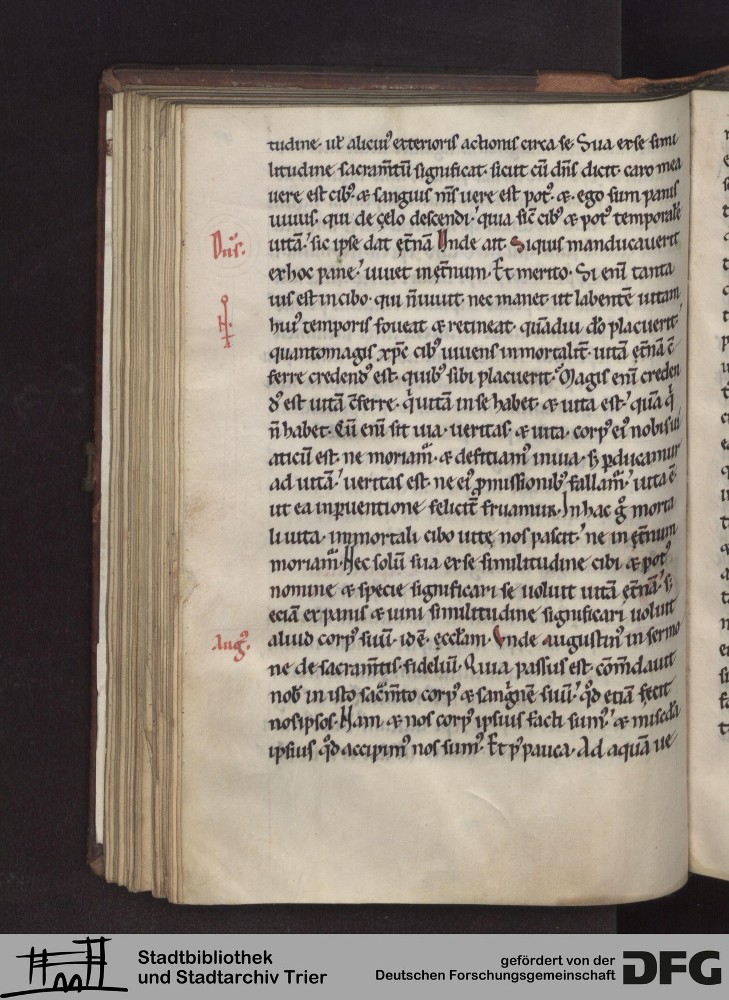 tudine· ut̄ alicui᷒ exterioris actionis circa se· Sua ex se simi
litudine sacram̄tū significat· sicut cū dn̄s dicit· caro mea
uere est cib᷒· & sanguis m̄s uere est pot᷒· & ego sum panis
uiuus· qui de cęlo descendi· quia sic̄ cib᷒ & pot᷒ temporalē
Dn̄s·
uitā· sic ipse dat ęt̄nā Unde ait· Siquis manducauerit
ex hoc pane· uiuet in ęt̄num· Et merito· Si enī tanta
uis est in cibo· qui n̄ uiuit· nec manet ut labentē uitam
hui᷒ temporis foueat & retineat· quādiu dō placuerit·
quantomagis xp̄c cib᷒ uiuens inmortalit̄· uitā ęt̄nā c̄
ferre credend᷒ est· quib᷒ sibi placuerit· Magis enī creden
d᷒ est uitā c̄ferre· qui uitā in se habet· & uita est· quā qui
n̄ habet· Cū enī sit uia· ueritas· & uita· corp᷒ ei᷒ nobis ui
aticū est· ne moriam̄· & defitiam᷒ in uia· s; ꝑducamur
ad uitā· ueritas est· ne ei᷒ ꝓmissionib᷒ fallam̄· uita ē
ut ea inꝑuentione felicit̄ fruamur· In hac g° morta
li uita· inmortali cibo uitę nos pascit· ne in ęt̄num
moriam̄· Nec solū sua ex se similitudine cibi & pot᷒
nomine & specie significari se uoluit uitā ęt̄nā· s;
eciā ex panis & uini similitudine significari uoluit
Aug᷒·
aliud corp᷒ suū· id ē· ęcct̄am· Unde augustin᷒ in sermo
ne de sacram̄tis fidelium· Quia passus est· cōm̄dauit
nob̄ in isto sac̄m̄to corp᷒ & sanguinē suū· qd̄ etiā fecit
nos ipsos· Nam & nos corp᷒ ipsius facti sum᷒· & mis̄cd̄ia
ipsius qd̄ accipim᷒ nos sum᷒· Et p᷒ pauca· Ad aquā ue
Stadtbibliothek
und Stadtarchiv Trier
gefördert von der
Deutschen Forschungsgemeinschaft
DFG